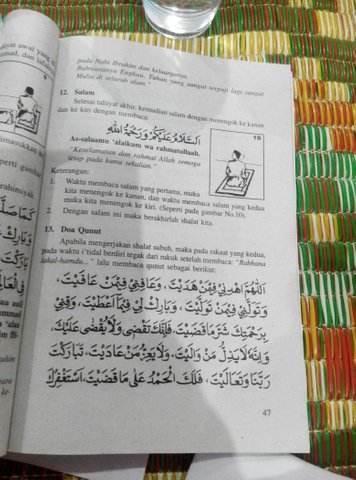 ahiyat awal yang di
mad, dan lafal
5
masukkan ke
Seperti gambar
rahimiyah.
كَمَا صَلَّ
وَبَارِكْ
aa aali
ammad
'alaa
pada Nabi Ibrahim dan keluarganya.
Bahwasanya Engkau, Tuhan yang sangat terpuji lagi sangat
Mulia di seluruh alam."
12. Salam
Selesai tahiyat akhir, kemudian salam dengan menengok ke kanan
dan ke kiri dengan membaca:
اَلسَّلَامُ عَلَيْكُمْ وَرَحْمَةُ اللهِ
10
As-salaamu 'alaikum wa rahmatullaah.
"Keselamatan dan rahmat Allah semoga
tetap pada kamu sekalian."
Keterangan:
1. Waktu membaca salam yang pertama, muka
kita menengok ke kanan, dan waktu membaca salam yang kedua
muka kita menengok ke kiri. (Seperti pada gambar No.10).
2. Dengan salam ini maka berakhirlah shalat kita.
13. Doa Qunut
Apabila mengerjakan shalat subuh, maka pada rakaat yang kedua,
pada waktu i'tidal berdiri tegak dari rukuk setelah membaca: "Rabbana
lakal-hamdu..." lalu membaca qunut sebagai berikut:
اَللّٰهُمَّ اهْدِنِيْ فِيْمَنْ هَدَيْتَ، وَعَافِنِيْ فِيْمَنْ عَافَيْتَ،
وَتَوَلَّنِيْ فِيْمَنْ تَوَلَّيْتَ، وَبَارِكْ لِيْ فِيْمَا اَعْطَيْتَ، وَقِنِيْ
بِرَحْمَتِكَ شَرَّ مَا قَضَيْتَ، فَاِنَّكَ تَقْضِيْ وَلَا يُقْضٰى عَلَيْكَ،
وَاِنَّهُ لَا يَذِلُّ مَنْ وَالَيْتَ، وَلَا يَعِزُّ مَنْ عَادَيْتَ، تَبَارَكْتَ
رَبَّنَا وَتَعَالَيْتَ، فَلَكَ الْحَمْدُ عَلٰى مَا قَضَيْتَ، اَسْتَغْفِرُكَ
47